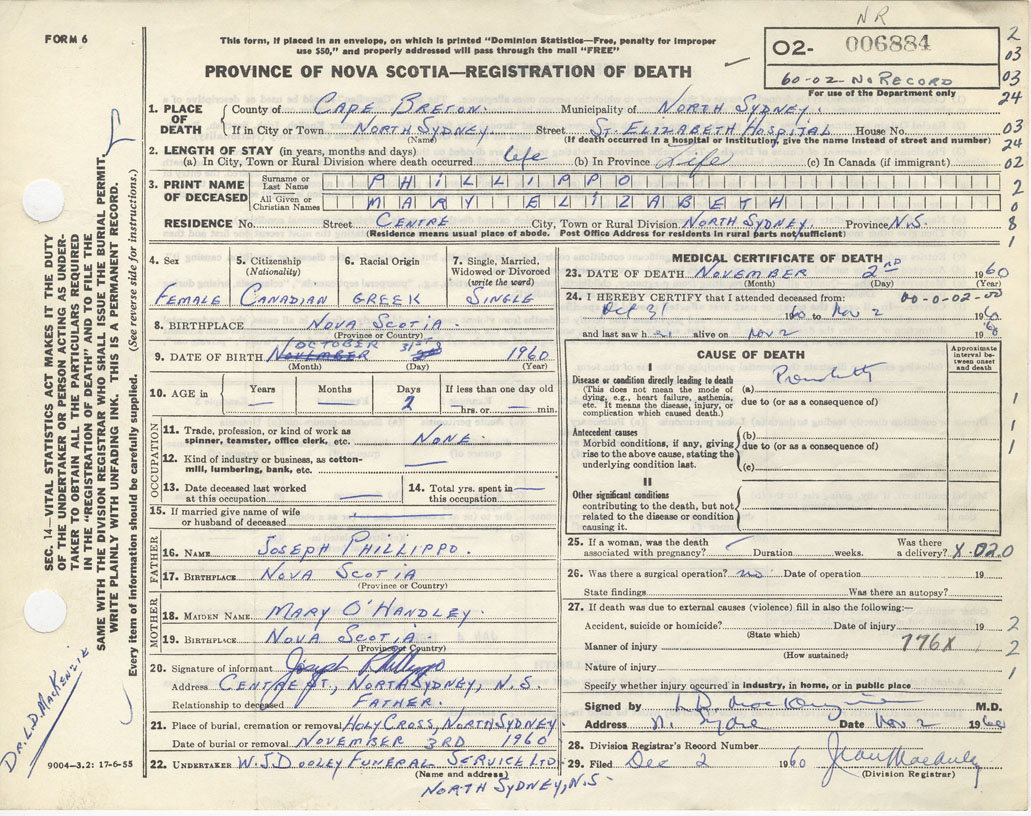 NR
FORM 6
This form, if placed in an envelope, on which is printed "Dominion Statistics—Free, penalty for improper
use $50," and properly addressed will pass through the mail "FREE"
PROVINCE OF NOVA SCOTIA—REGISTRATION OF DEATH
02- 006884
60-02-No RECORD
For use of the Department only
2
03
03
24
03
24
02
2
0
8
1
1. PLACE OF DEATH
County of CAPE BRETON. Municipality of NORTH SYDNEY.
If in City or Town NORTH SYDNEY Street ST. ELIZABETH HOSPITAL House No.
(Name) (If death occurred in a hospital or institution, give the name instead of street and number)
2. LENGTH OF STAY (in years, months and days)
(a) In City, Town or Rural Division where death occurred life (b) In Province Life (c) In Canada (if immigrant)
3. PRINT NAME OF DECEASED
Surname or Last Name PHILLIPPO
All Given or Christian Names MARY ELIZABETH
RESIDENCE No. Street CENTRE City, Town or Rural Division NORTH SYDNEY. Province N.S.
(Residence means usual place of abode. Post Office Address for residents in rural parts not sufficient)
4. Sex
FEMALE
5. Citizenship
(Nationality)
CANADIAN
6. Racial Origin
GREEK
7. Single, Married,
Widowed or Divorced
(write the word)
SINGLE
8. BIRTHPLACE NOVA SCOTIA.
(Province or Country)
OCTOBER 31ST
9. DATE OF BIRTH NOVEMBER 1960
(Month) (Day) (Year)
10. AGE in Years Months Days If less than one day old
— — 2 —hrs. or — min.
OCCUPATION
11. Trade, profession, or kind of work as
spinner, teamster, office clerk, etc. NONE.
12. Kind of industry or business, as cotton-
mill, lumbering, bank, etc. —
13. Date deceased last worked
at this occupation —
14. Total yrs. spent in
this occupation —
15. If married give name of wife
or husband of deceased —
FATHER
16. NAME JOSEPH PHILLIPPO.
17. BIRTHPLACE NOVA SCOTIA
(Province or Country)
MOTHER
18. MAIDEN NAME MARY O'HANDLEY.
19. BIRTHPLACE NOVA SCOTIA.
(Province or Country)
20. Signature of informant Joseph Phillippo
Address CENTRE ST., NORTH SYDNEY, N.S.
Relationship to deceased FATHER.
21. Place of burial, cremation or removal HOLY CROSS, NORTH SYDNEY.
Date of burial or removal NOVEMBER 3RD 1960
22. UNDERTAKER W.J. DOOLEY FUNERAL SERVICE LTD
(Name and address)
NORTH SYDNEY, N.S
MEDICAL CERTIFICATE OF DEATH
23. DATE OF DEATH NOVEMBER 2ND 1960
(Month) (Day)
24. I HEREBY CERTIFY that I attended deceased from: 00-0-02-00
Oct 31 1960 to Nov 2 1960
and last saw h alive on Nov 2 1960
CAUSE OF DEATH
Approximate
interval be-
tween onset
and death
I
Disease or condition directly leading to death
(This does not mean the mode of
dying, e.g., heart failure, asthenia,
etc. It means the disease, injury, or
complication which caused death.)
(a)
due to (or as a consequence of)
Antecedent causes
Morbid conditions, if any, giving
rise to the above cause, stating the
underlying condition last.
(b)
due to (or as a consequence of)
(c)
II
Other significant conditions
contributing to the death, but not
related to the disease or condition
causing it.
1
1
1
25. If a woman, was the death
associated with pregnancy? Duration weeks. Was there
a delivery? X-020
26. Was there a surgical operation? no Date of operation 19
State findings Was there an autopsy?
27. If death was due to external causes (violence) fill in also the following:—
Accident, suicide or homicide? Date of injury 19 2
(State which)
Manner of injury 776X 2
(How sustained)
Nature of injury 1
Specify whether injury occurred in industry, in home, or in public place
Signed by L.D. MacKenzie M.D.
Address N. Sydney Date Nov 2 1960
28. Division Registrar's Record Number
29. Filed Dec 2 1960
(Division Registrar)
SEC. 14—VITAL STATISTICS ACT MAKES IT THE DUTY
OF THE UNDERTAKER OR PERSON ACTING AS UNDER-
TAKER TO OBTAIN ALL THE PARTICULARS REQUIRED
IN THE "REGISTRATION OF DEATH" AND TO FILE THE
SAME WITH THE DIVISION REGISTRAR WHO SHALL ISSUE THE BURIAL PERMIT.
WRITE PLAINLY WITH UNFADING INK. THIS IS A PERMANENT RECORD.
Every item of information should be carefully supplied. (See reverse side for instructions.)
DR. L.D. MACKENZIE
9004—3.2: 17-6-55